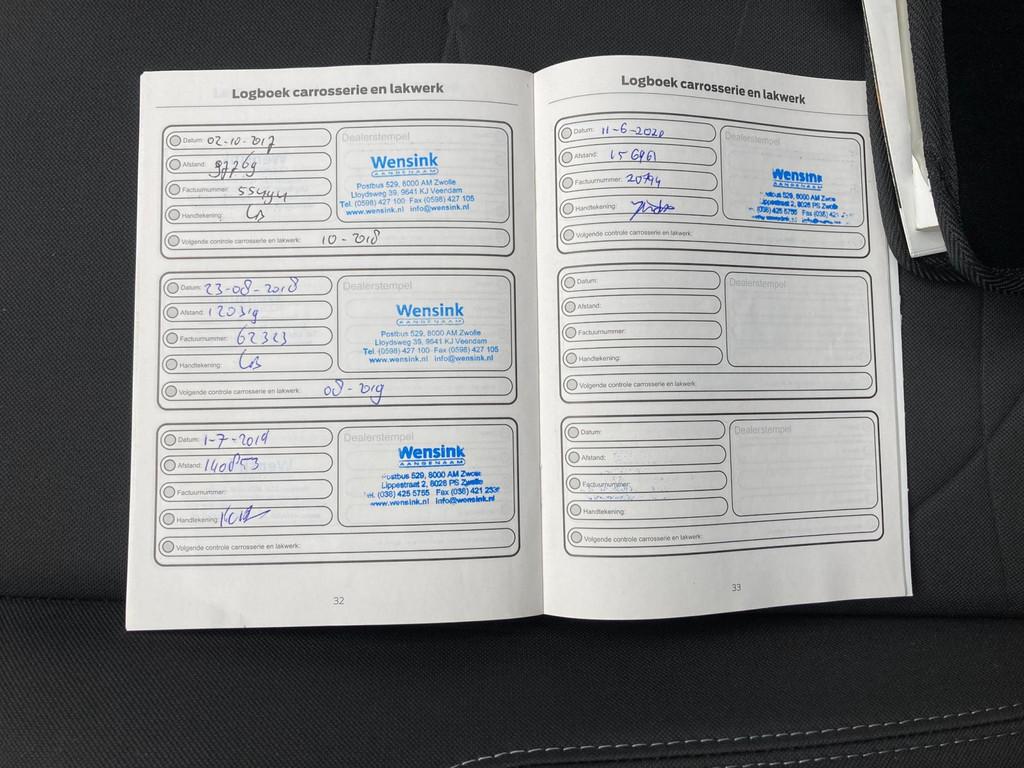 Logboek carrosserie en lakwerk
Datum: 02-10-2017
Dealerstempel
Afstand:
Wensink
AANGENAAM
Factuurnummer: 55444
Postbus 529, 8000 AM Zwolle
Lloydsweg 39, 9641 KJ Veendam
Tel. (0598) 427 100 Fax (0598) 427 105
www.wensink.nl info@wensink.nl
Handtekening:
Volgende controle carrosserie en lakwerk: 10-2018
Datum: 23-08-2018
Dealerstempel
Afstand: 120319
Wensink
AANGENAAM
Factuurnummer: 62323
Postbus 529, 8000 AM Zwolle
Lloydsweg 39, 9641 KJ Veendam
Tel. (0598) 427 100 Fax (0598) 427 105
www.wensink.nl info@wensink.nl
Handtekening:
Volgende controle carrosserie en lakwerk: 08-2019
Datum: 1-7-2019
Dealerstempel
Afstand: 140853
Wensink
AANGENAAM
Factuurnummer:
Postbus 529, 8000 AM Zwolle
Lippestraat 2, 8028 PS Zwolle
Tel. (038) 425 5755 Fax (038) 421
www.wensink.nl info@wensink.nl
Handtekening:
Volgende controle carrosserie en lakwerk:
32
Logboek carrosserie en lakwerk
Datum: 11-6-2020
Dealerstempel
Afstand: 156961
Wensink
AANGENAAM
Factuurnummer:
529, 8000 AM
Lippestraat 2, 8028 PS Zwolle
(038) 425 5755 Fax (038)
Handtekening:
Volgende controle carrosserie en lakwerk:
Datum:
Dealerstempel
Afstand:
Factuurnummer:
Handtekening:
Volgende controle carrosserie en lakwerk:
Datum:
Dealerstempel
Afstand:
Factuurnummer:
Handtekening:
Volgende controle carrosserie en lakwerk:
33